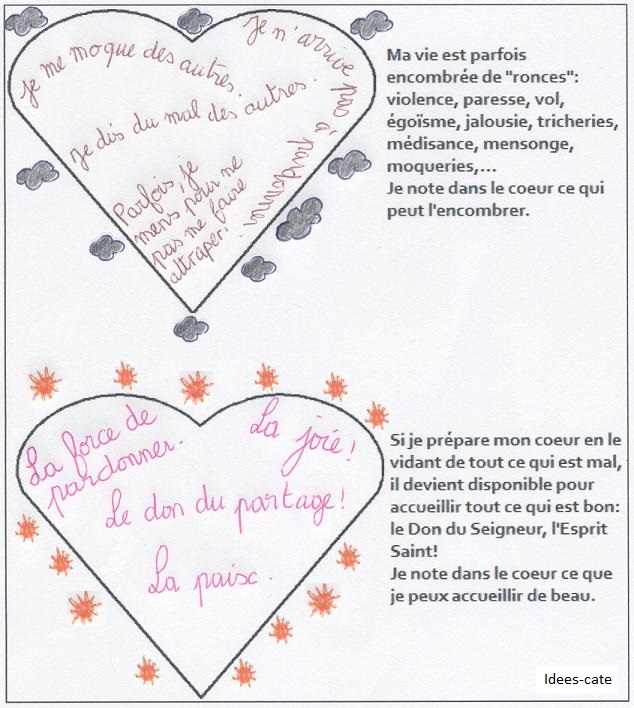 Je me moque des autres.
Je n'arrive pas à pardonner.
Je dis du mal des autres.
Parfois, je
mens pour ne
pas me faire
attraper.
Ma vie est parfois
encombrée de "ronces":
violence, paresse, vol,
égoïsme, jalousie, tricheries,
médisance, mensonge,
moqueries,...
Je note dans le coeur ce qui
peut l'encombrer.
La force de
pardonner.
La joie!
Le don du partage!
La paix.
Si je prépare mon coeur en le
vidant de tout ce qui est mal,
il devient disponible pour
accueillir tout ce qui est bon:
le Don du Seigneur, l'Esprit
Saint!
Je note dans le coeur ce que
je peux accueillir de beau.
Idees-cate